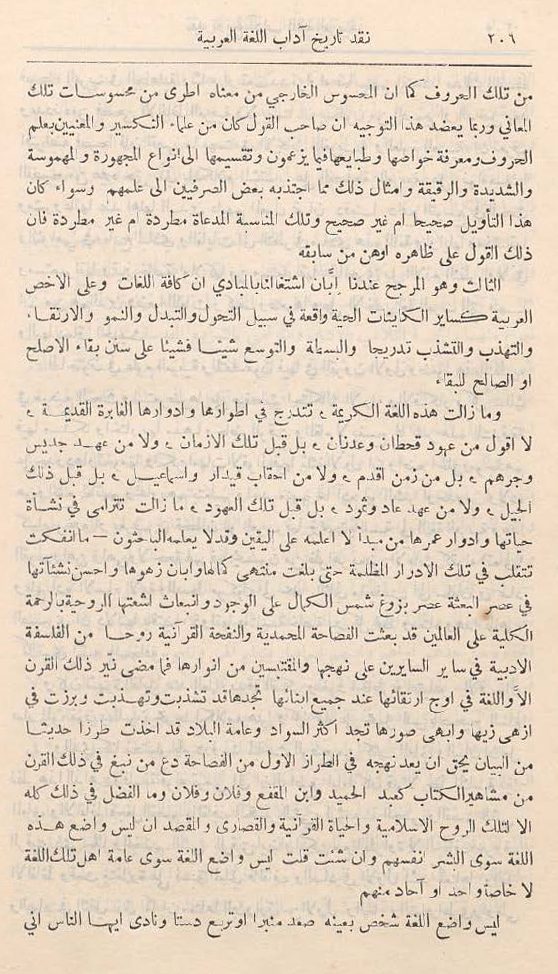 ٢٠٦ نقد تاريخ آداب اللغة العربية
من تلك الحروف كما ان المحسوس الخارجي من معناه اطرى من محسوسات تلك
المعاني وربما يعضد هذا التوجيه ان صاحب القول كان من علماء التكسير والمعنيين بعلم
الحروف ومعرفة خواصها وطبايعها فيما يزعمون وتقسيمها الى انواع المجهورة والمهموسة
والشديدة والرقيقة وامثال ذلك مما اجتذبه بعض الصرفيين الى علمهم وسواء كان
هذا التأويل صحيحا ام غير صحيح وتلك المناسبة المدعاة مطردة ام غير مطردة فان
ذلك القول على ظاهره اوهن من سابقه
الثالث وهو المرجح عندنا اِبَّان اشتغالنا بالمبادي ان كافة اللغات وعلى الاخص
العربية كساير الكاينات الحية واقعة في سبيل التحول والتبدل والنمو والارتقاء
والتهذب والتشذب تدريجا والبسطة والتوسع شيئا فشيئا على سنن بقاء الاصلح
او الصالح للبقاء
وما زالت هذه اللغة الكريمة ء تتدرج في اطوارها وادوارها الغابرة القديمة ء
لا اقول من عهود قحطان وعدنان ء بل قبل تلك الازمان ء ولا من عهد جديس
وجرهم ء بل من زمن اقدم ء ولا من احقاب قيدار واسماعيل ء بل قبل ذلك
الجيل ء ولا من عهد عاد وثمود ء بل قبل تلك العهود ء ما زالت تترامى في نشأة
حياتها وادوار عمرها من مبدأ لا اعلمه على اليقين وقد لا يعلمه الباحثون – ما انفكت
تتقلب في تلك الادرار المظلمة حتى بلغت منتهى كمالها وابان زهوها واحسن نشئآتها
في عصر البعثة عصر بزوغ شمس الكمال على الوجود وانبعاث اشعتها الروحية بالرحمة
الكلية على العالمين قد بعثت الفصاحة المحمدية والنفحة القرآنية روحا من الفلسفة
الادبية في ساير السايرين على نهجها والمقتبسين من انوارها فما مضى نير ذلك القرن
الا واللغة في اوج ارتقائها عند جميع ابنائها تجدها قد تشذبت وتهذبت وبرزت في
ازهى زيها وابهى صورها تجد اكثر السواد وعامة البلاد قد اخذت طرزا حديثا
من البيان يحق ان يعد نهجه في الطراز الاول من الفصاحة دع من نبغ في ذلك القرن
من مشاهير الكتاب كعبد الحميد وابن المقفع وفلان وفلان وما الفضل في ذلك كله
الا لتلك الروح الاسلامية والحياة القرآنية والقصارى والمقصد ان ليس واضع هذه
اللغة سوى البشر انفسهم وان شئت قلت ليس واضع اللغة سوى عامة اهل تلك اللغة
لا خاصاً واحد او آحاد منهم
ليس واضع اللغة شخص بعينه صعد منبرا او تربع دستا ونادى ايها الناس اني